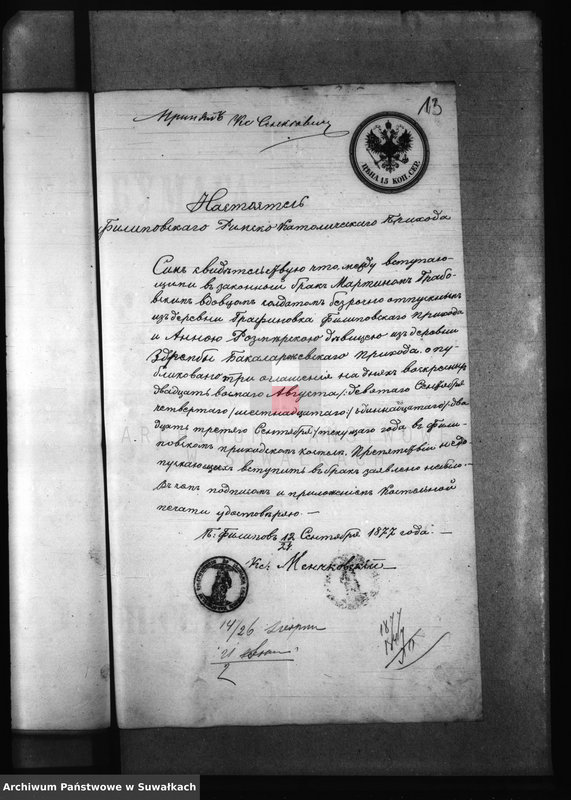 13
Принялъ Кс
ЦѢНА 15 КОП. СЕР.
Настоятель
Филиповскаго Римско Католическаго Прихода
Симъ свидѣтельствую что, между вступаю-
щими въ законный бракъ Мартиномъ Грабо-
вскимъ вдовцомъ солдатомъ безсрочно отпускнымъ
изъ деревни Филиповскаго Прихода
и Анною дѣвицею изъ деревни
Бакаларжевскаго Прихода, опу-
бликовано три оглашенія на дняхъ воскресныхъ
двадцать восьмаго Августа /: девятаго Сентября
четвертаго /шестнадцатаго/ одиннадцатаго /: два
дцать третьяго Сентября/ текущаго года въ Фили-
повскомъ приходскомъ костелѣ. Препятствій недо
пускающихъ вступить въ бракъ заявлено небыло
Въ чемъ подписомъ и приложеніемъ Костельной
печати удостовѣряю. —
П. Филиповъ 12/24 Сентября 1877 года. —
Кс. Менчковскій
14/26
21
2
1877
Archiwum Państwowe w Suwałkach